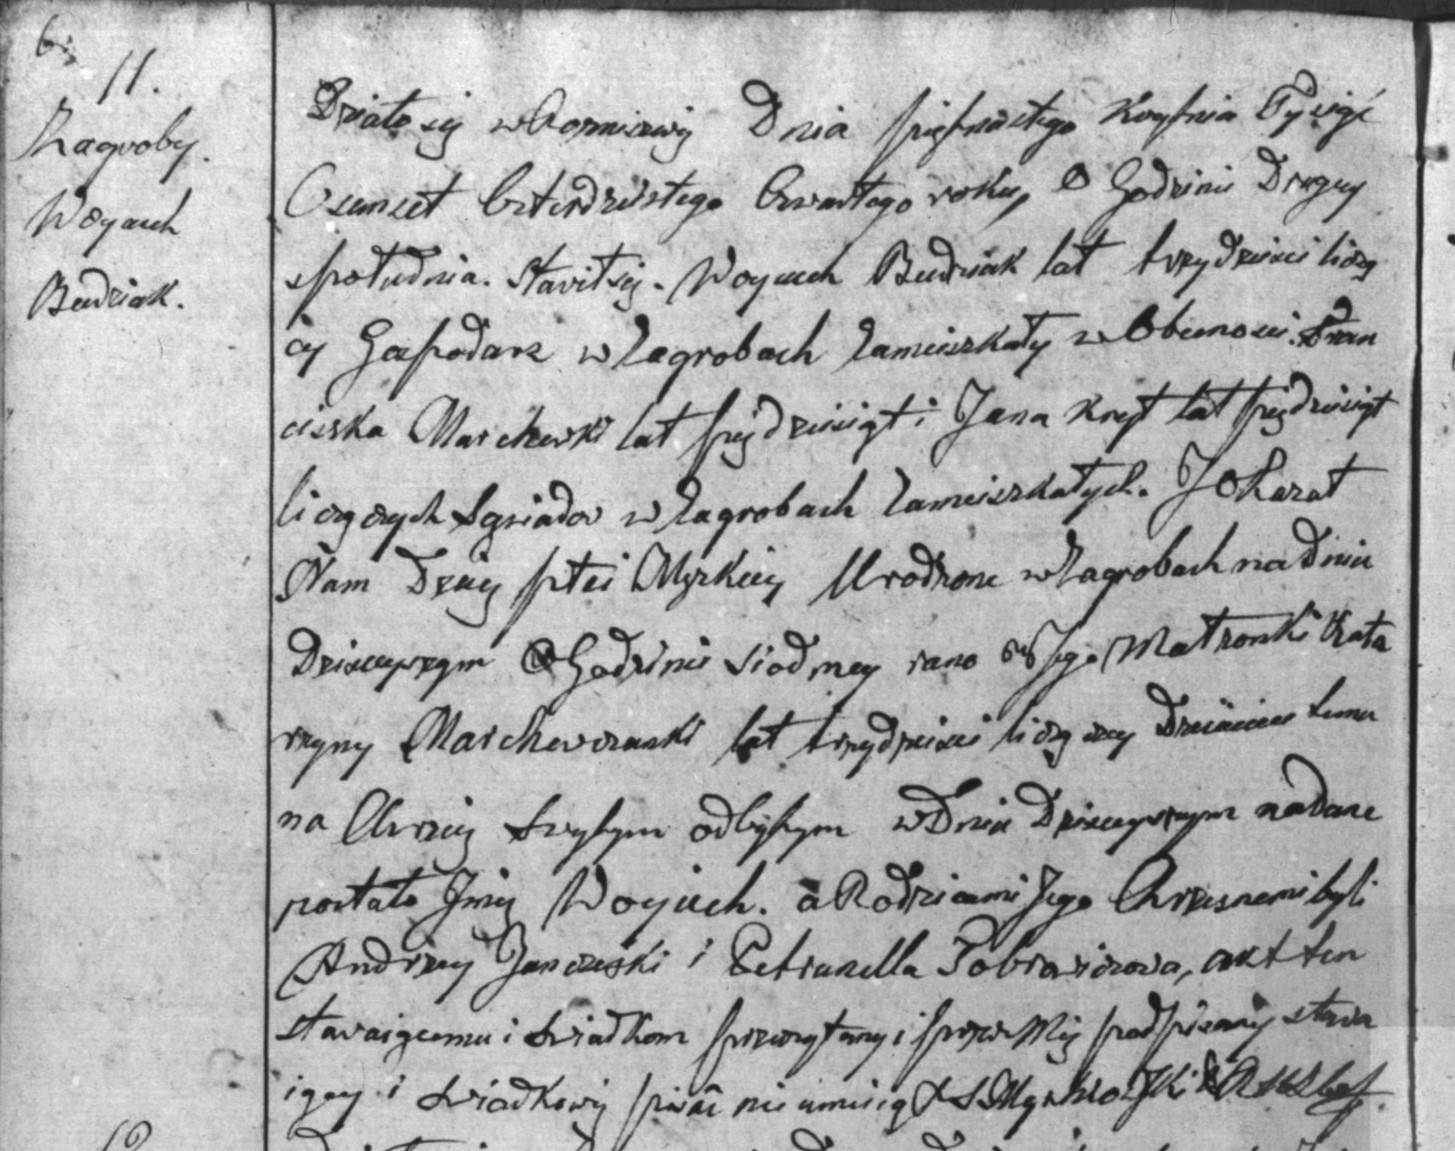 6.
11.
Zagroby.
Woyciech
Budziak.
Działo się w Dnia piętnastego Kwytnia Tysiąć
Osmset Czterdziestego Czwartego roku, O Godzinie Drugiey
społudnia. Stawił się. Woyciech Budziak lat trzydzieści liczą
cy Gospodarz w Zagrobach Zamieszkały w Obecnosci Fran
ciszka Marchewki lat pięćdziesiąt i Jana lat pięćdziesiąt
liczących Sąsiadow w Zagrobach Zamieszkałych. I Okazał
Nam Dziecię płci Męzkiey Urodzone w Zagrobach na Dniu
Dzisieyszym O Godzinie Siodmey rano z Jego Małzonki Kata
rzyny Marchewczanki lat trzydzieści liczącey Dziecieciu temu
na Chrzcie Swiętym odbytym w Dniu Dzisieyszym nadane
zostało Imię Woyciech. a Rodzicami Jego Chrzesnemi byli
Andrzey Janczeski i Petrunella akt ten
stawaiącemu i Swiadkom przeczytany i przez My podpisany stawa
iący i Swiadkowie pisać nie umieią
12